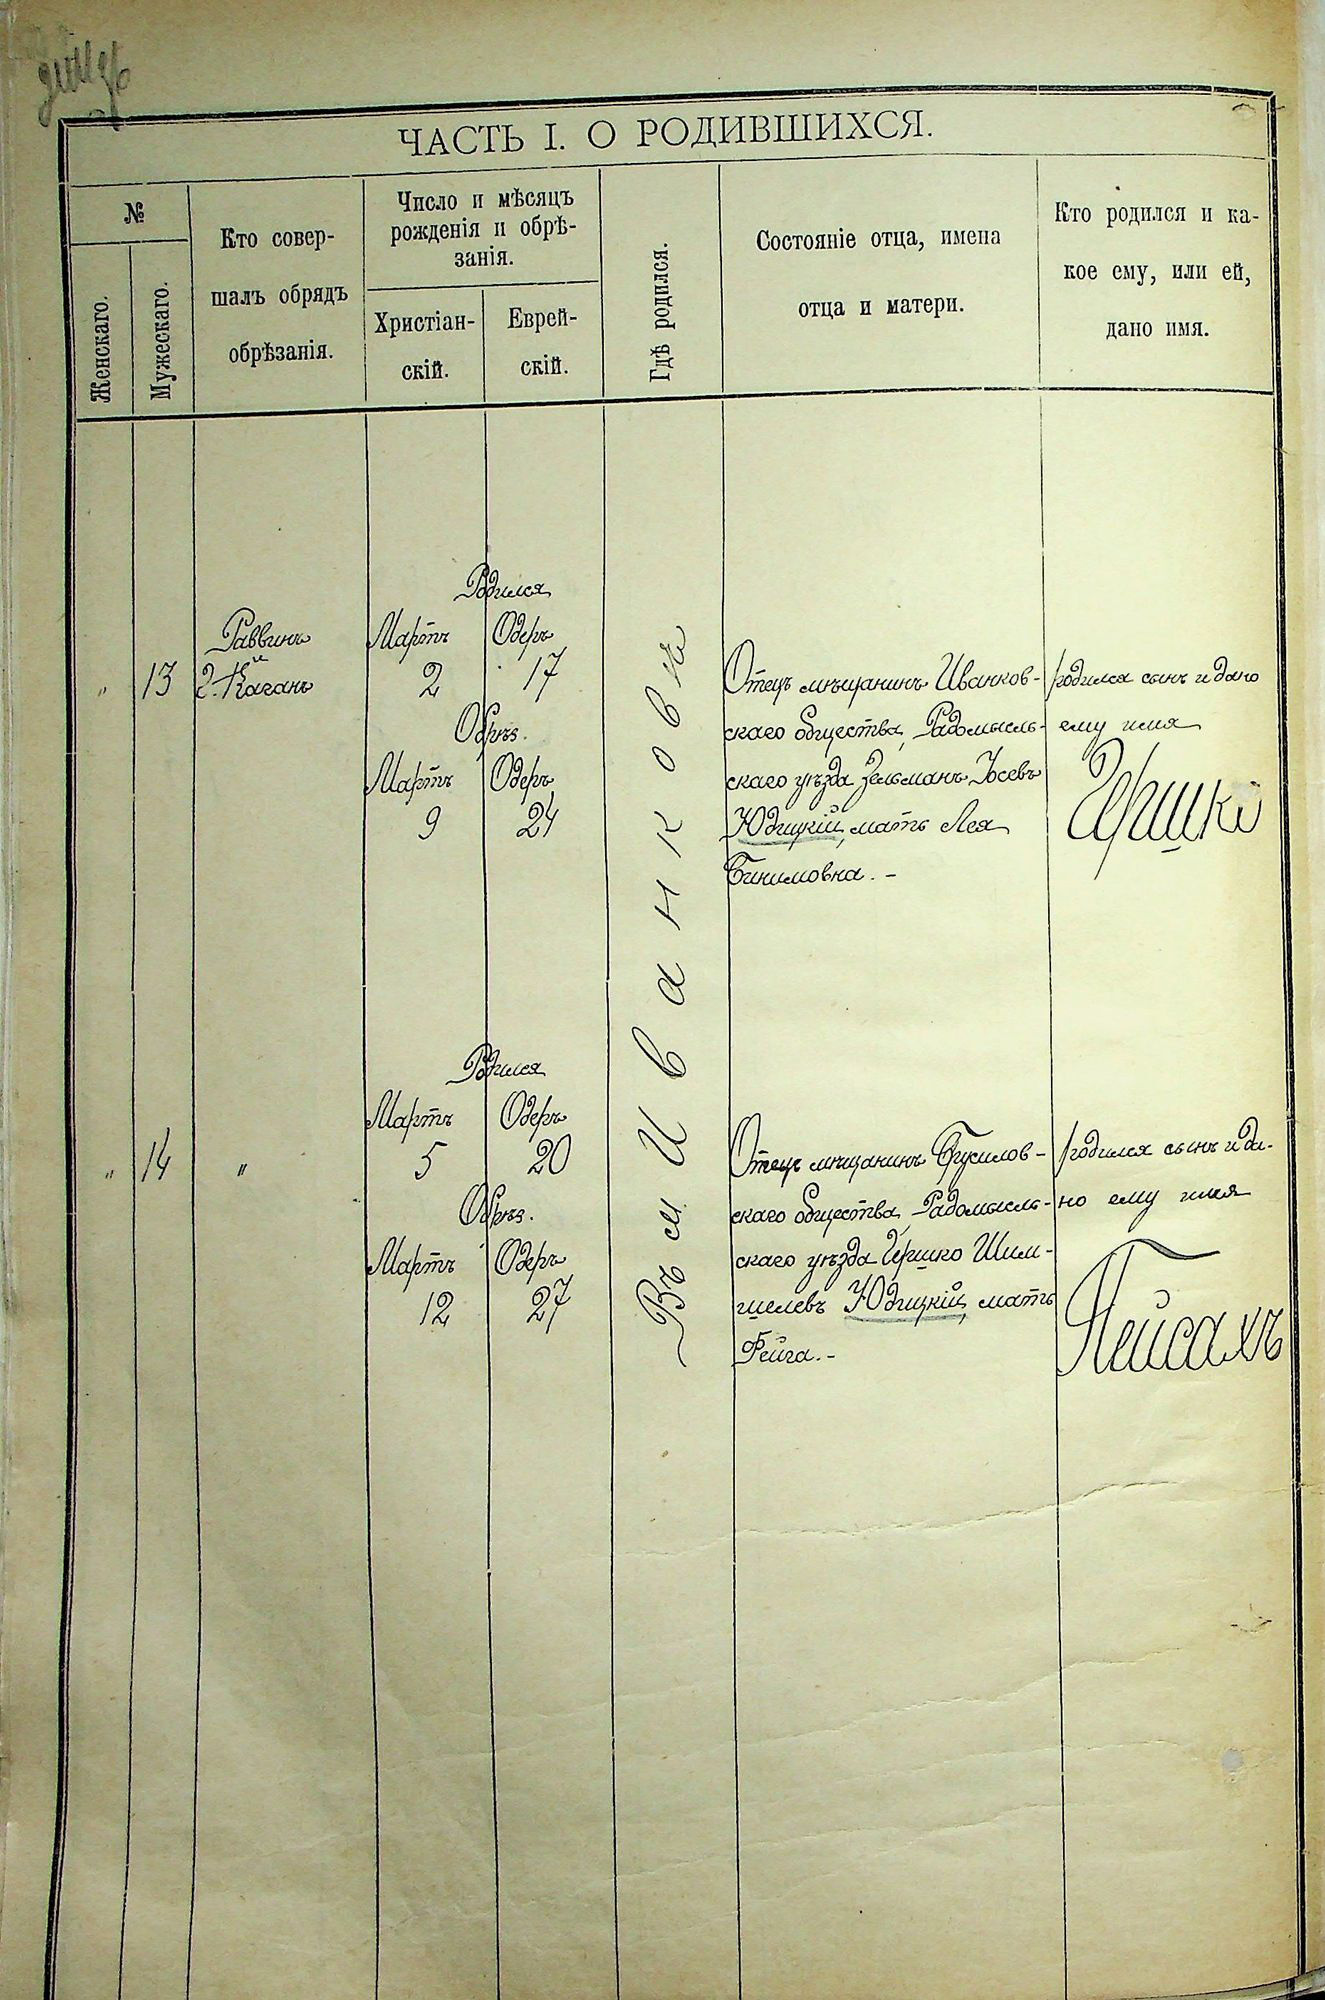 ЧАСТЬ I. О РОДИВШИХСЯ.
№
Женскаго.
Мужескаго.
Кто совер-
шалъ обрядъ
обрѣзанія.
Число и мѣсяцъ
рожденія и обрѣ-
занія.
Христіан-
скій.
Еврей-
скій.
Гдѣ родился.
Состояніе отца, имена
отца и матери.
Кто родился и ка-
кое ему, или ей,
дано имя.
Въ м Иванковѣ
Родился
Раввинъ Мартъ Одеръ
„ 13 Г. Каганъ 2 17
Обрѣз.
Мартъ Одеръ
9 24
Отецъ мѣщанинъ Иванков-
скаго общества, Радомысль-
скаго уѣзда Зельманъ Іосевъ
Юдицкій, мать Лея
Бинимовна. –
родился сынъ и дано
ему имя
Гершко
Родился
Мартъ Одеръ
„ 14 „ 5 20
Обрѣз.
Мартъ Одеръ
12 27
Отецъ мѣщанинъ Брусилов-
скаго общества, Радомысль-
скаго уѣзда Гершко Шим-
шелевъ Юдицкій, мать
Фейга. –
родился сынъ и да-
но ему имя
Пейсахъ